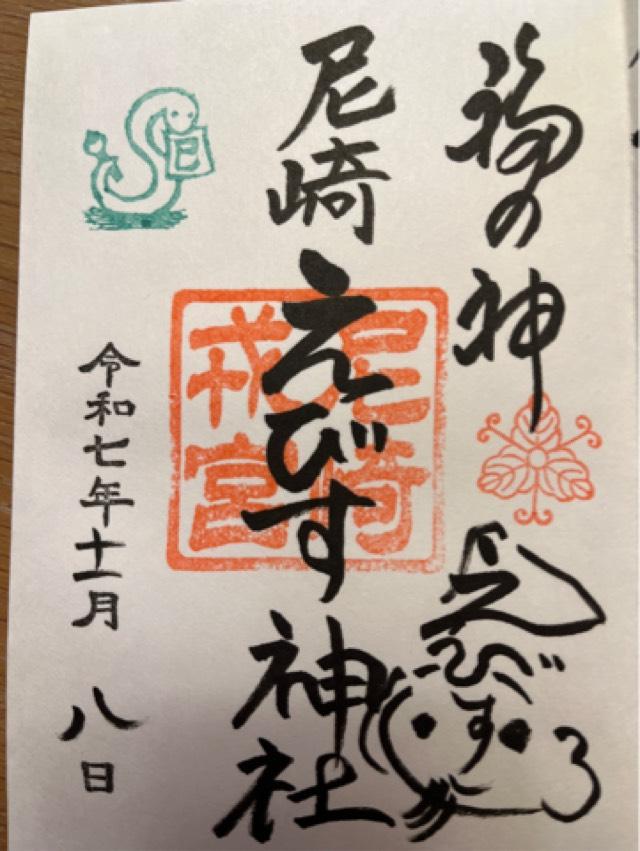 福の神
えびす
尼崎えびす神社
尼崎
戎宮
巳
令和七年十一月八日